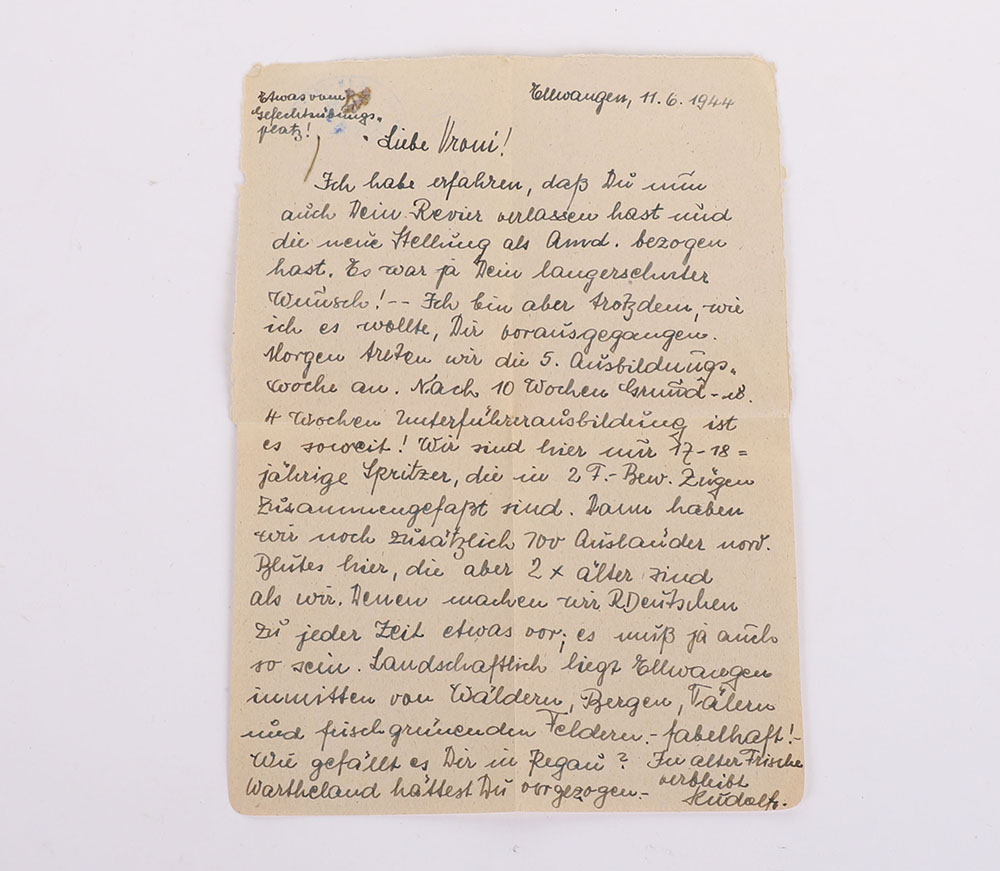 Etwas vom
Gefechtsübungs-
platz!
Ellwangen, 11.6.1944
Liebe Vroni!
Ich habe erfahren, daß Du nun
auch Dein Revier verlassen hast und
die neue Stellung als Anwd. bezogen
hast. Es war ja Dein langersehnter
Wunsch! -- Ich bin aber trotzdem, wie
ich es wollte, Dir vorausgegangen.
Morgen treten wir die 5. Ausbildungs-
woche an. Nach 10 Wochen Grund- u.
4 Wochen Unterführerausbildung ist
es soweit! Wir sind hier nur 17-18=
jährige Spritzer, die in 2 F.-Bew. Zügen
zusammengefaßt sind. Dann haben
wir noch zusätzlich 700 Ausländer nord.
Blutes hier, die aber 2 x älter sind
als wir. Denen machen wir RDeutschen
zu jeder Zeit etwas vor; es muß ja auch
so sein. Landschaftlich liegt Ellwangen
inmitten von Wäldern, Bergen, Tälern
und frischgrünenden Feldern. - fabelhaft! -
Wie gefällt es Dir in Regau?
Wartheland hättest Du vorgezogen. -
In alter Frische
verbleibt
Rudolf.